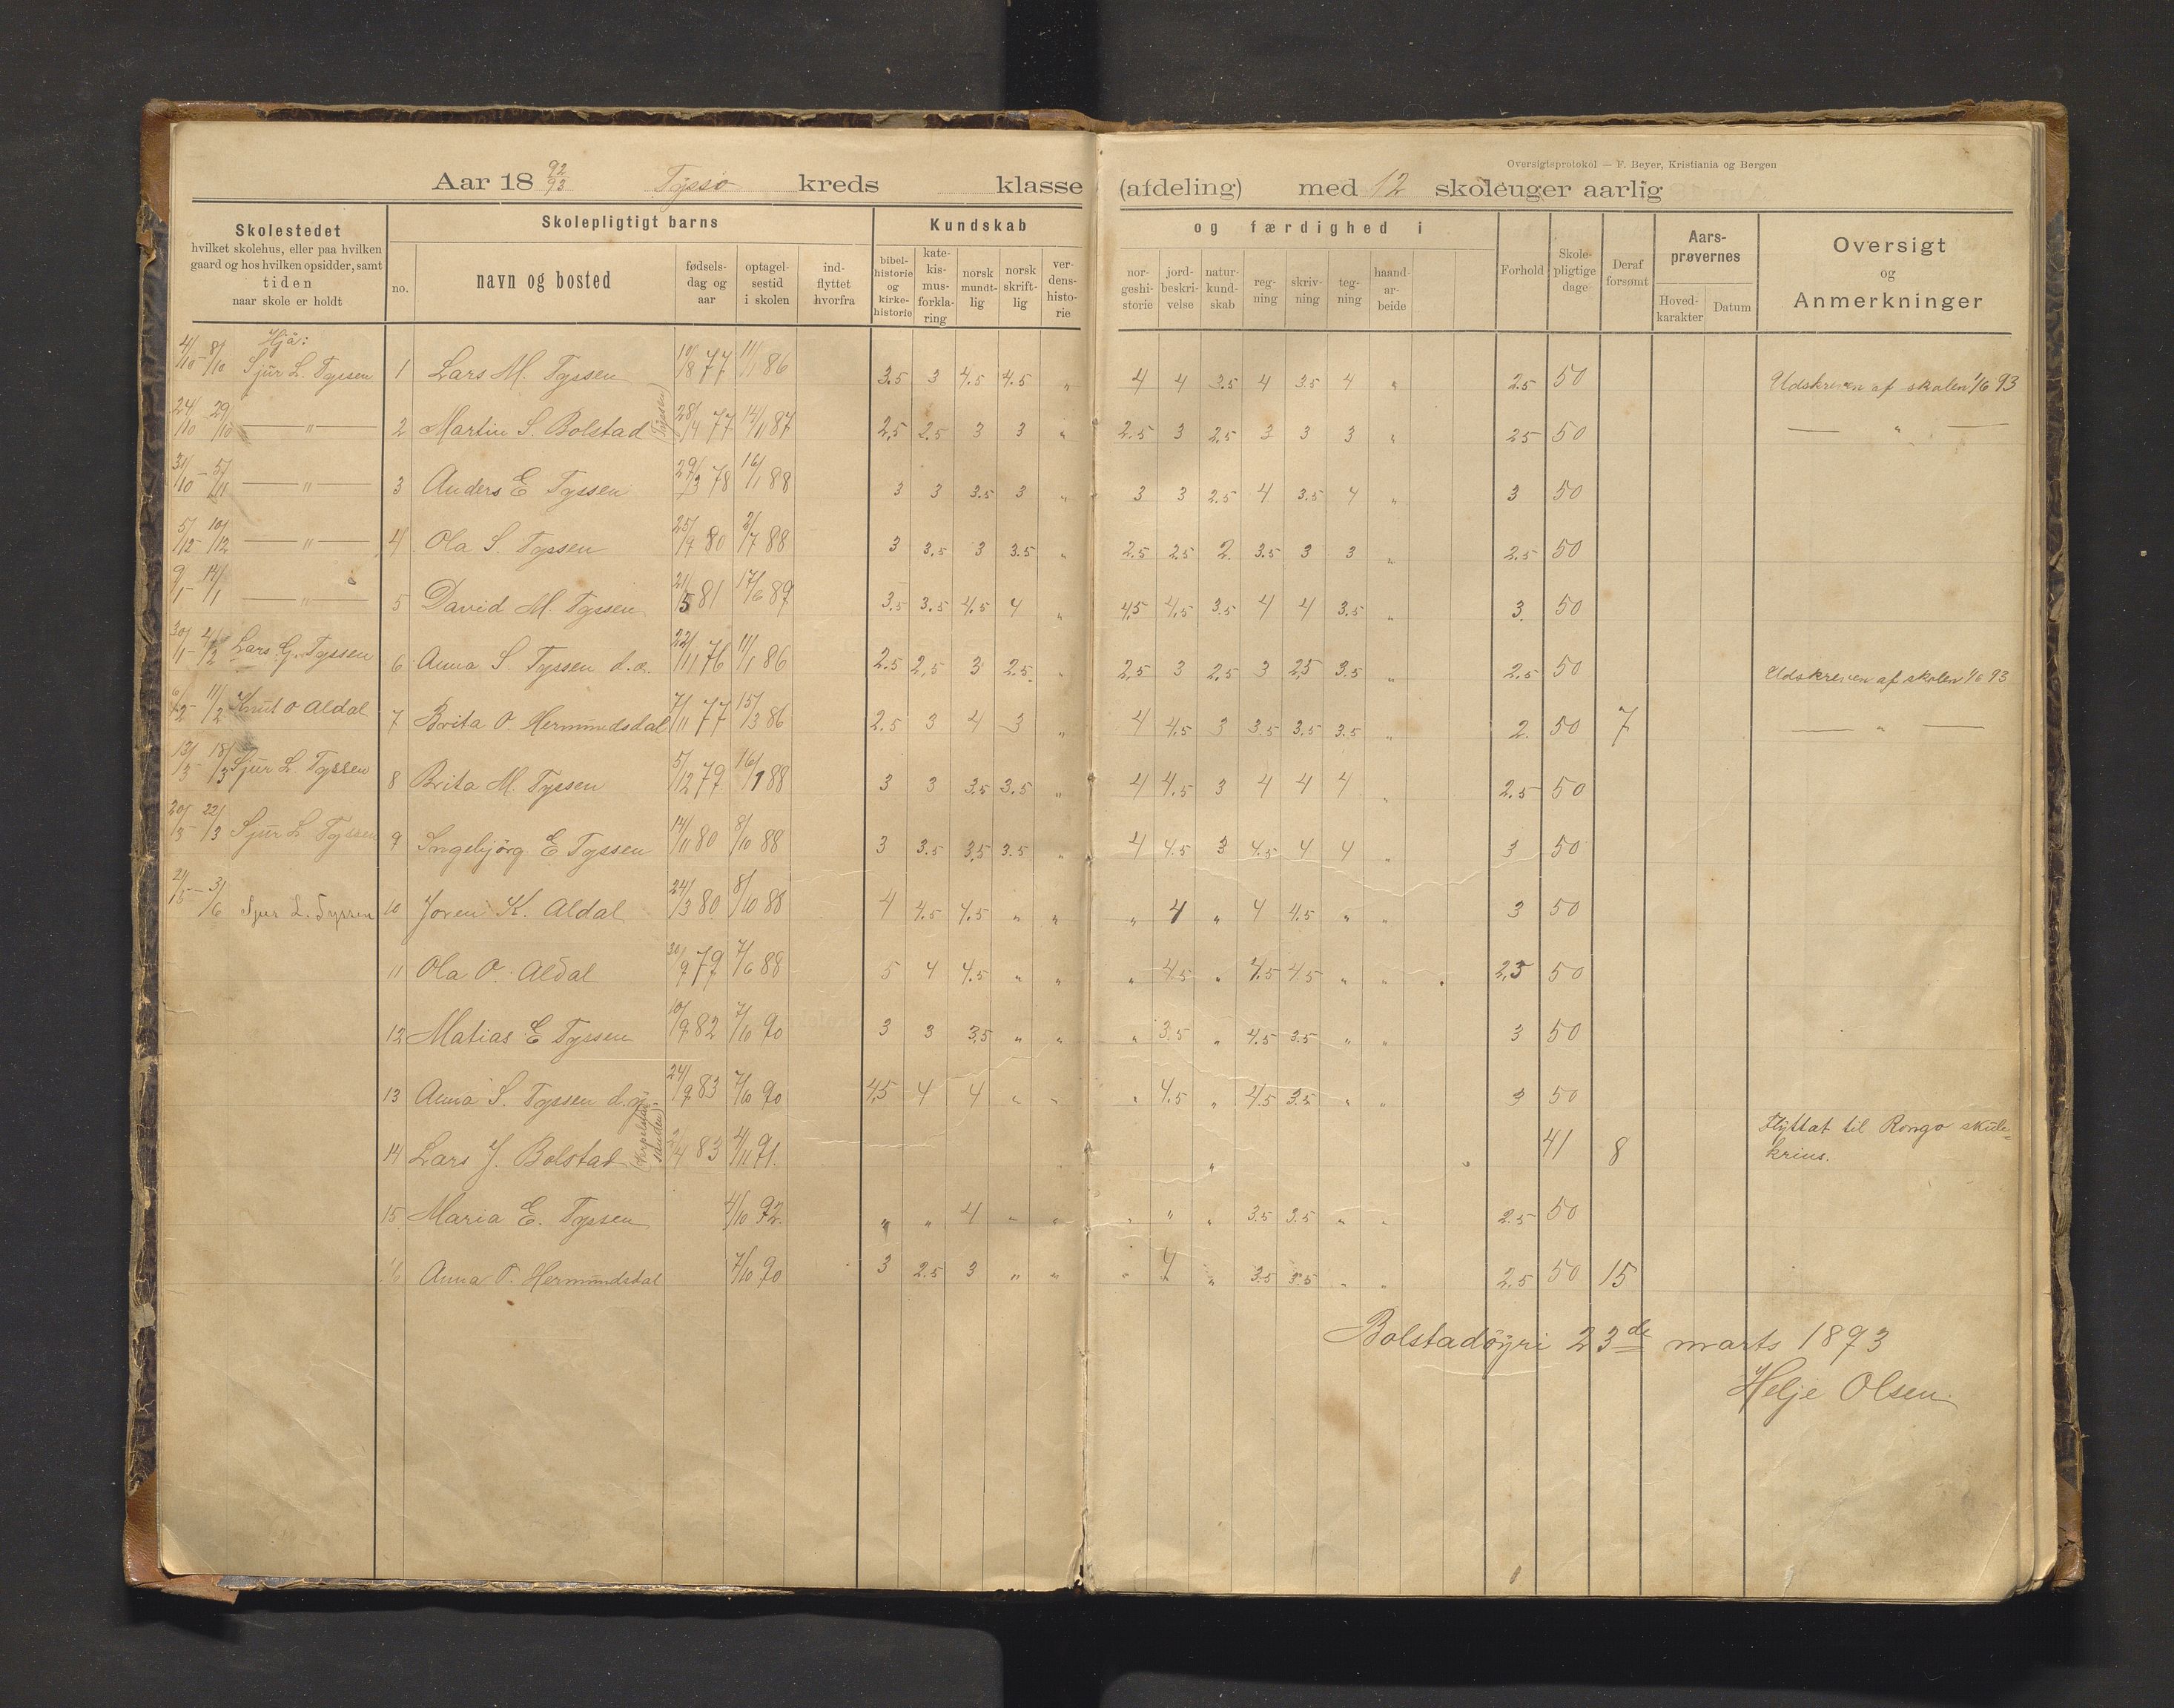 Oversigtsprotokol — F. Beyer, Kristiania og Bergen
Aar 18 92/93 Tyssø kreds klasse (afdeling) med 12 skoleuger aarlig
Skolestedet
hvilket skolehus, eller paa hvilken
gaard og hos hvilken opsidder, samt
tiden
naar skole er holdt
Skolepligtigt barns
no.
navn og bosted
fødsels-
dag og
aar
optagel-
sestid
i skolen
ind-
flyttet
hvorfra
Kundskab og færdighed i
bibel-
historie
og
kirke-
historie
kate-
kis-
mus-
forkla-
ring
norsk
mundt-
lig
norsk
skrift-
lig
ver-
dens-
histo-
rie
nor-
geshi-
storie
jord-
beskri-
velse
natur-
kund-
skab
reg-
ning
skriv-
ning
teg-
ning
haand-
ar-
beide
Forhold
Skole-
pligtige
dage
Deraf
forsømt
Aars-
prøvernes
Hoved-
karakter
Datum
Oversigt
og
Anmerkninger
Hjå:
4/10 - 8/10 Sjur L. Tyssen 1 Lars M. Tyssen 10/8 77 11/1 86 3.5 3 4.5 4.5 „ 4 4 3.5 4 3.5 4 „ 2.5 50 Udskreven af skolen 1/6 93
24/10 29/10 — „ — 2 Martin S. Bolstad (Tyssen) 28/4 77 14/11 87 2,5 2.5 3 3 „ 2.5 3 2.5 3 3 3 „ 25 50 — „ —
31/10 - 5/11 — „ — 3 Anders E Tyssen 29/3 78 16/1 88 3 3 3.5 3 „ 3 3 2.5 4 3.5 4 „ 3 50
5/12 - 10/12 — „ — 4 Ola S. Tyssen 25/9 80 2/7 88 3 3.5 3 3.5 „ 2.5 2.5 2. 3.5 3 3 „ 2.5 50
9/1 - 14/1 — „ — 5 David M. Tyssen 21/5 81 17/6 89 3.5 3.5 4.5 4 „ 4,5 4.5 3.5 4 4 3.5 „ 3. 50
30/1 - 4/2 Lars G. Tyssen 6 Anna S. Tyssen d.æ. 22/11 76 11/1 86 2.5 2,5 3 2.5. „ 2,5 3 2,5 3 2,5 3.5 „ 2.5 50 Udskreven af skolen 1/6 93
6/2 - 11/2 Knut O Aldal 7 Brita O. Hermundsdal 7/11 77 15/3 86 2.5 3 4 3 „ 4 4.5 3 3.5 3.5 3.5 „ 2. 50 7 — „ —
13/3 - 18/3 Sjur L. Tyssen 8 Brita M. Tyssen 5/12 79 16/1 88 3 3 3.5 3.5 „ 4 4.5 3 4 4 4 „ 2.5 50
20/3 - 22/3 Sjur L Tyssen 9 Ingebjörg E Tyssen 14/11 80 8/10 88 3 3.5 3,5 3.5 „ 4 4.5 3 4.5 4 4 „ 3 50
3/6 Sjur L. Tyssen 10 Joren K. Aldal 24/3 80 8/10 88 4 4.5 4.5 „ „ „ 4 „ 4 4.5 „ „ 3 50
11 Ola O. Aldal 30/9 79 7/6 88 5 4 4.5 „ „ „ 4.5 „ 4.5 4.5 „ „ 2,5 50
12 Matias E Tyssen 10/9 82 7/10 90 3 3 3,5 „ „ „ 3.5 „ 4.5 3.5 „ „ 3 50
13 Anna S. Tyssen d.y. 24/9 83 7/10 90 4,5 4 4 „ „ „ 4.5 „ 4.5 3.5 „ „ 3 50
14 Lars J. Bolstad 83 4/11 91. „ 41 8 Flyttat til Rongo skule=
krins.
15 Maria E. Tyssen 4/10 92. „ „ 4 „ „ „ „ „ 3.5 3.5 „ „ 2.5 50
16 Anna O. Hermundsdal 7/10 90 3 2.5 3 „ „ „ 4 „ 3.5 3.5 „ „ 2.5 50 15
Bolstadöyri 23de marts 1893
Helje Olsen.